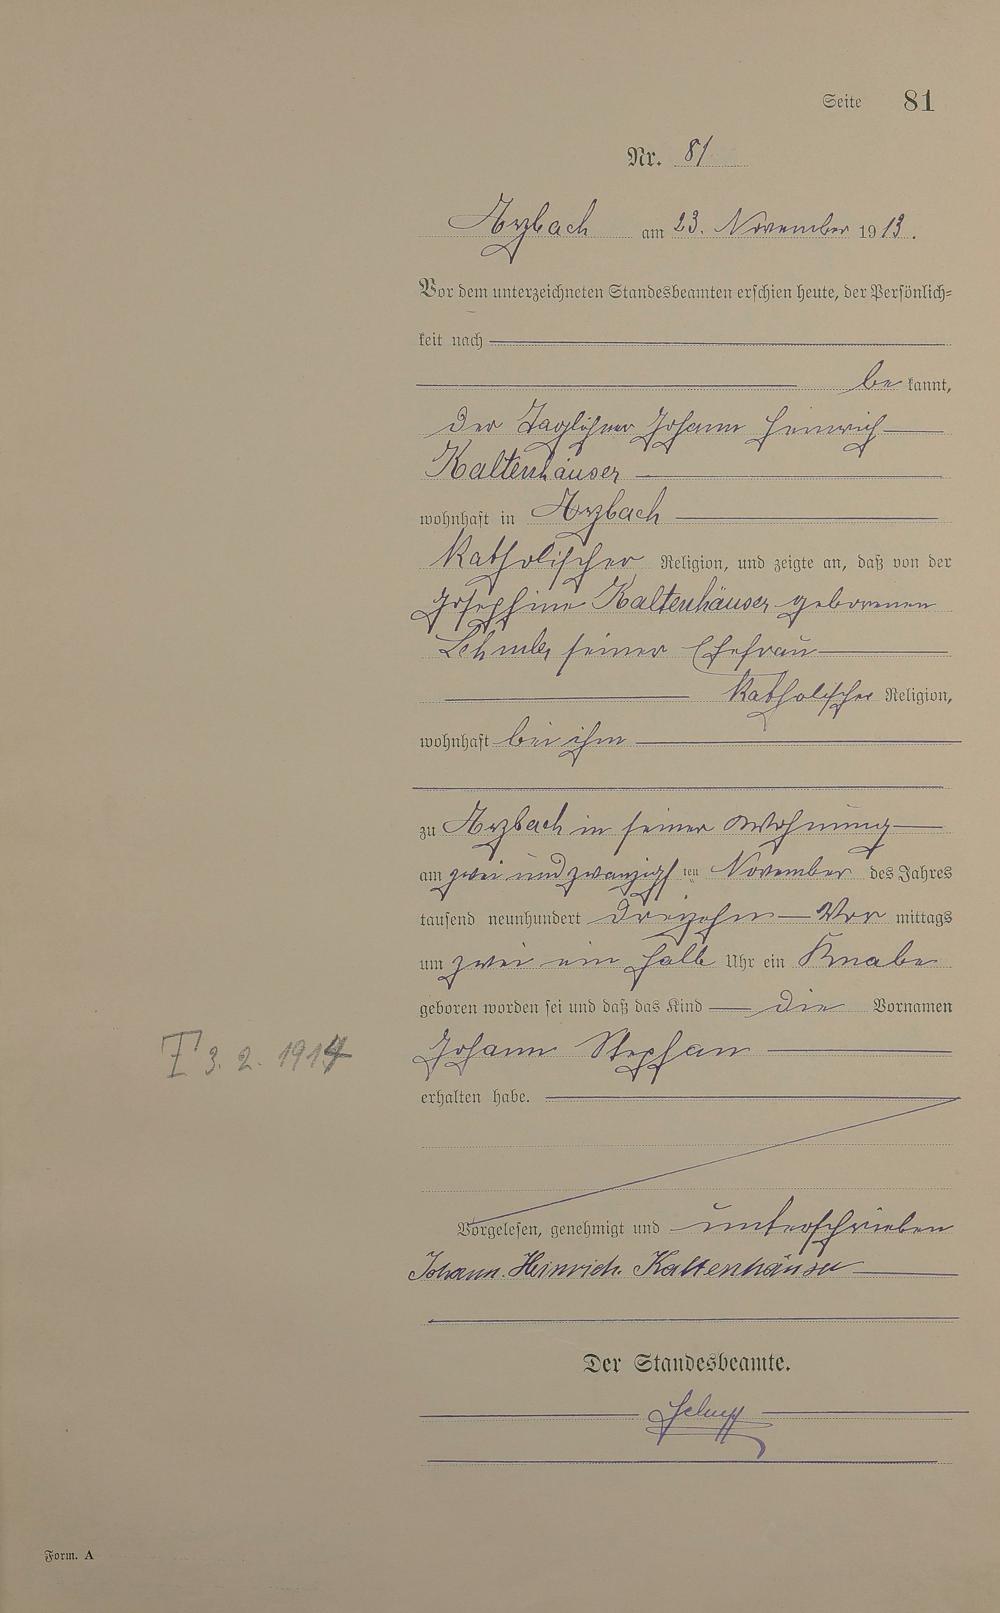 Seite 81
Nr. 81
Arzbach am 23. November 1913.
Vor dem unterzeichneten Standesbeamten erschien heute, der Persönlich=
keit nach
be kannt,
der Taglöhner Johann Heinrich
Kaltenhäuser
wohnhaft in Arzbach
katholischer Religion, und zeigte an, daß von der
Josephine Kaltenhäuser geborenen
seiner Ehefrau
katholischer Religion,
wohnhaft bei ihm
zu Arzbach in seiner Wohnung
am zwei und zwanzigsten November des Jahres
tausend neunhundert dreizehn Vor mittags
um zwei ein halb Uhr ein Knabe
geboren worden sei und daß das Kind die Vornamen
Johann Stephan
† 3. 2. 1914
erhalten habe.
Vorgelesen, genehmigt und unterschrieben
Johann Heinrich Kaltenhäuser
Der Standesbeamte.
Form. A